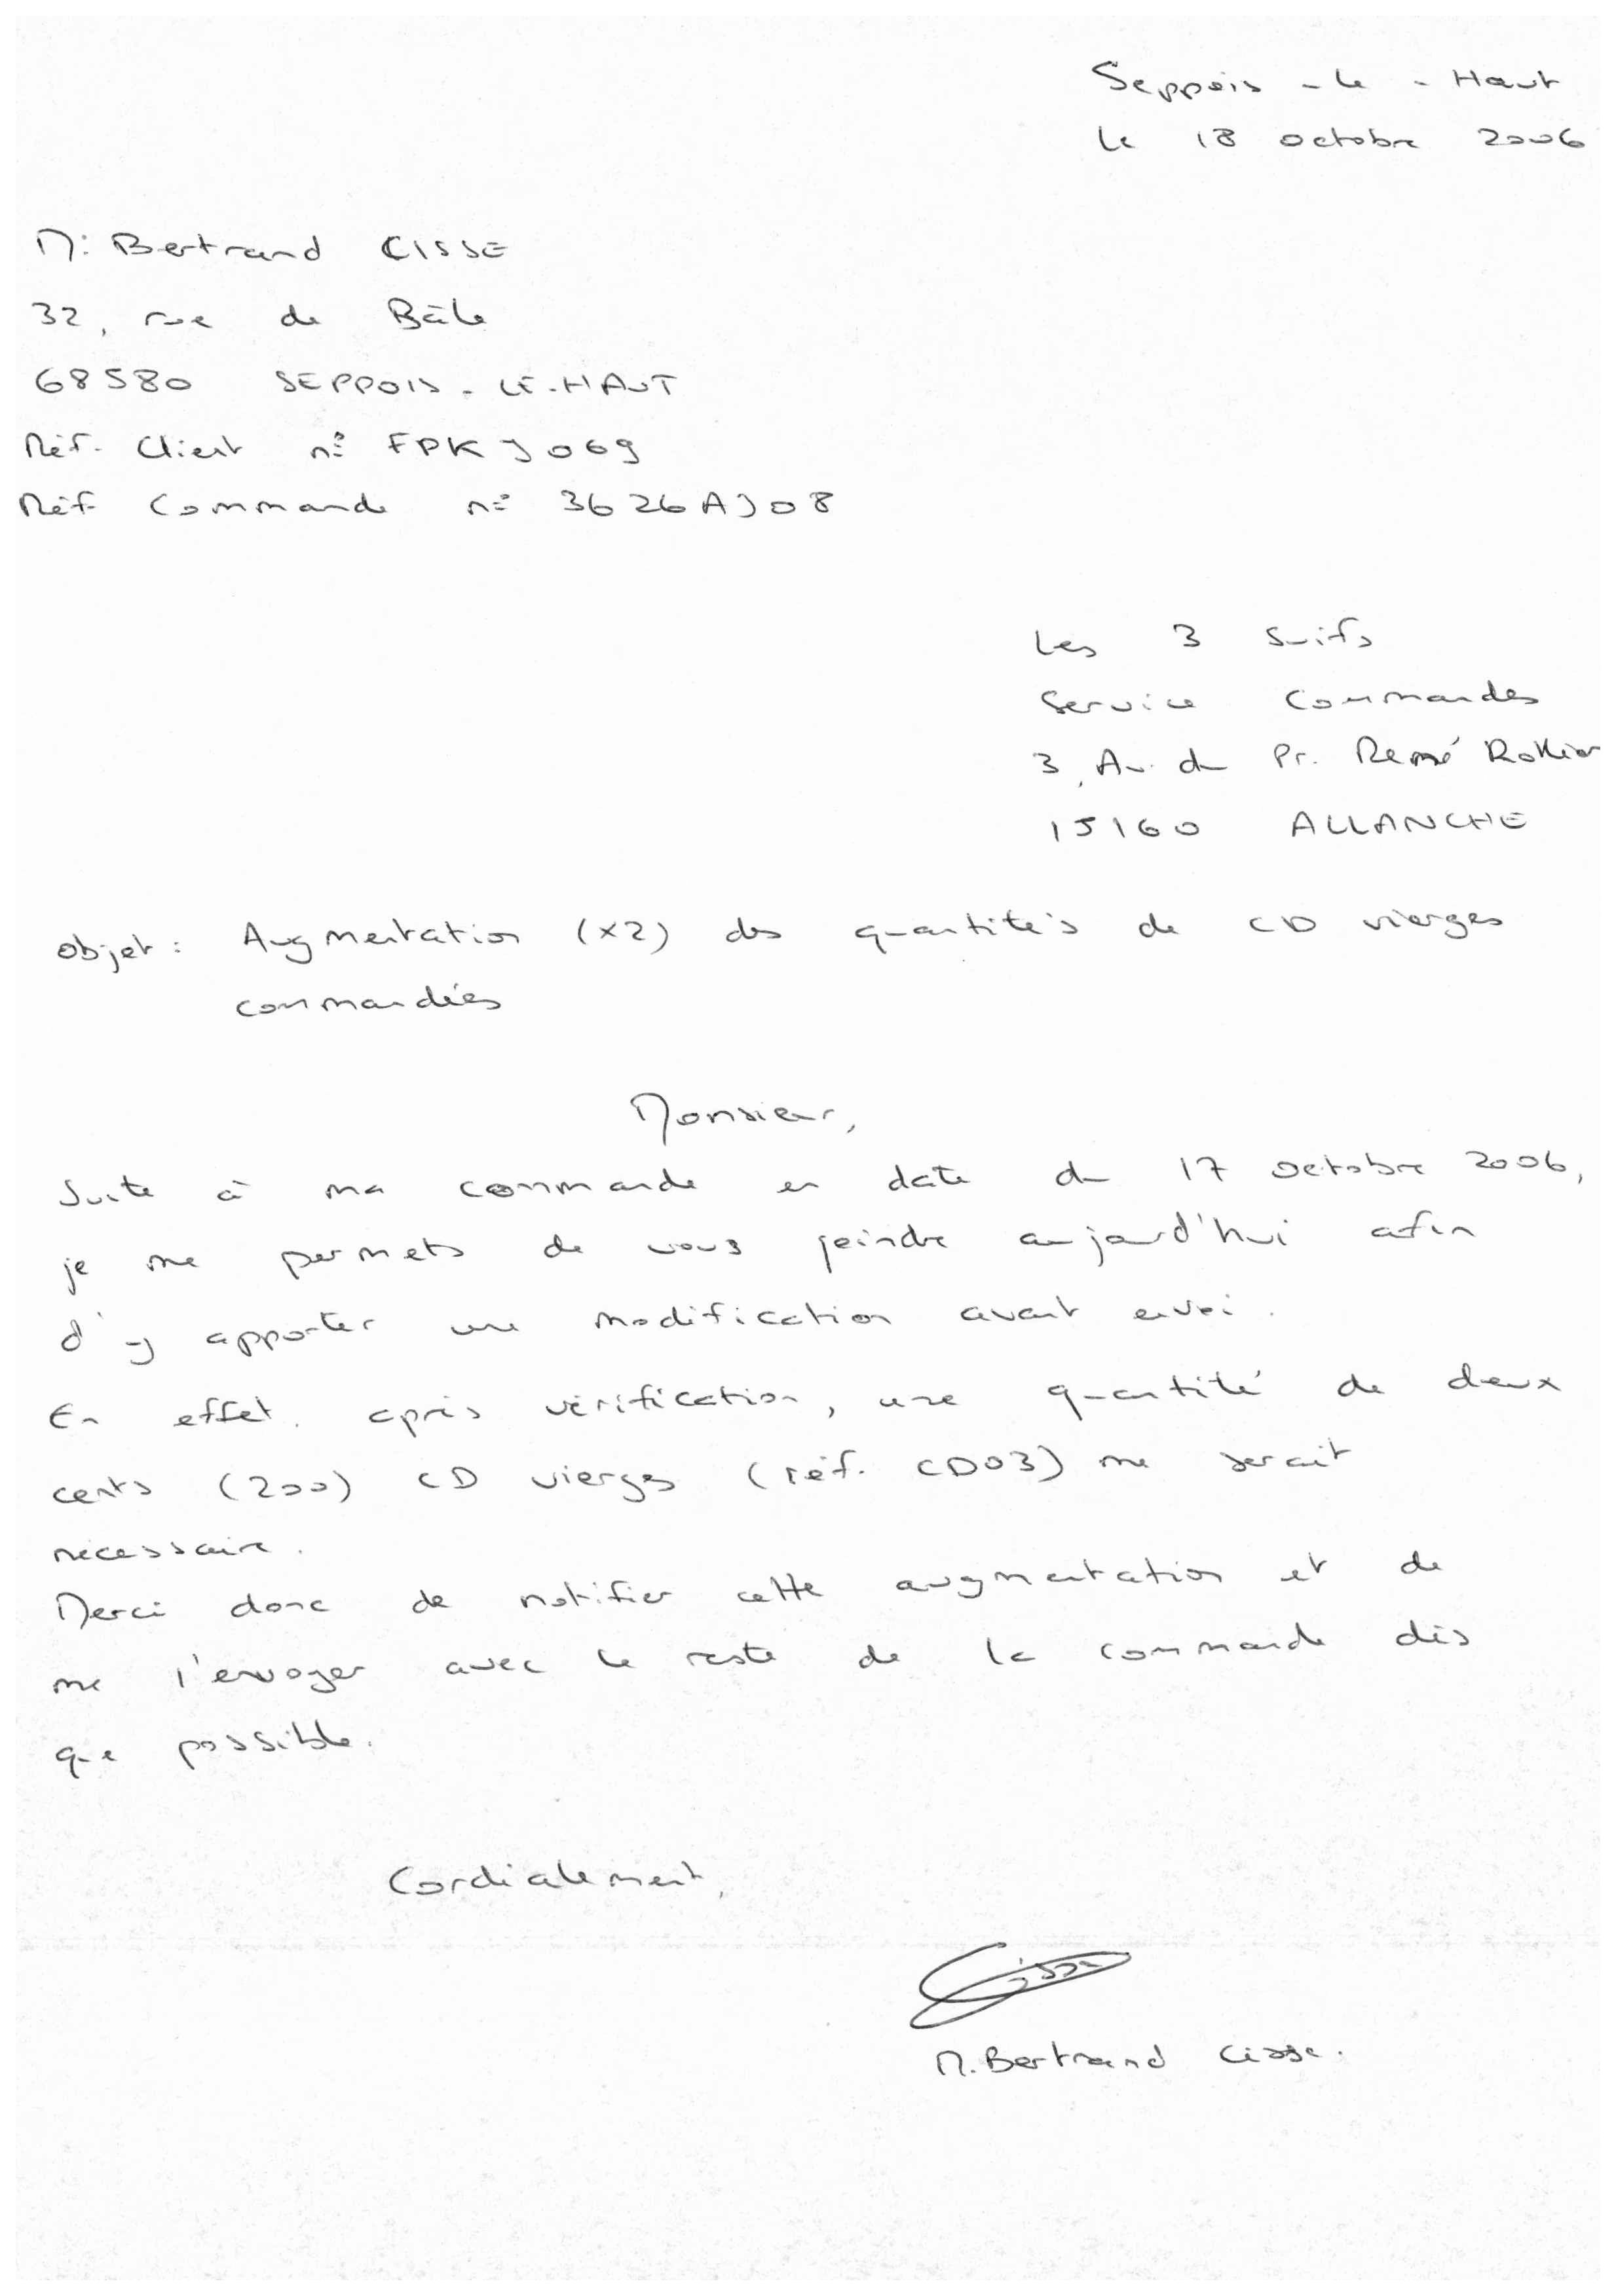 Seppois-le-Haut
le 18 octobre 2006
M. Bertrand CISSE
32, rue de Bâle
68580 SEPPOIS-LE-HAUT
Réf. Client n° FPKJ069
Réf Commande n° 3626AJ08
Les 3 Suifs
Service Commandes
3, Av. du Pr. René
15160 ALLANCHE
Objet : Augmentation (x2) des quantités de CD vierges
commandées
Monsieur,
Suite à ma commande en date du 17 octobre 2006,
je me permets de vous joindre aujourd'hui afin
d'y apporter une modification avant envoi.
En effet, après vérification, une quantité de deux
cents (200) CD vierges (réf. CD03) me serait
nécessaire.
Merci donc de notifier cette augmentation et de
me l'envoyer avec le reste de la commande dès
que possible.
Cordialement,
Cisse
M. Bertrand Cisse.